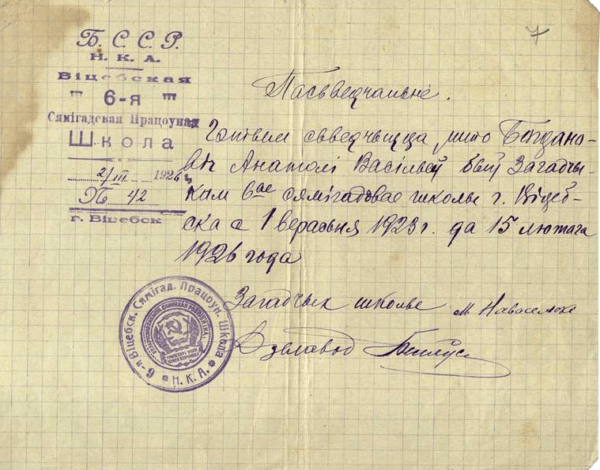 7
Б.С.С.Р.
Н.К.А.
Віцебская
6-я
Сямігадская Працоуная
Школа
2/III 1926 г.
№ 42
г. Віцебск
Пасьведчаньне.
Гэтым сьведчыцца, што Багдано-
віч Анатолі Васільеў быў Загадчы-
кам 6ае сямігадовае школы г. Віцеб-
ска с 1 верасьня 1923 г. да 15 лютага
1926 года
Загадчык школы
Дзелавод
Віцебск. Сямігад. Працоун. Школа
6-я
Н.К.А.